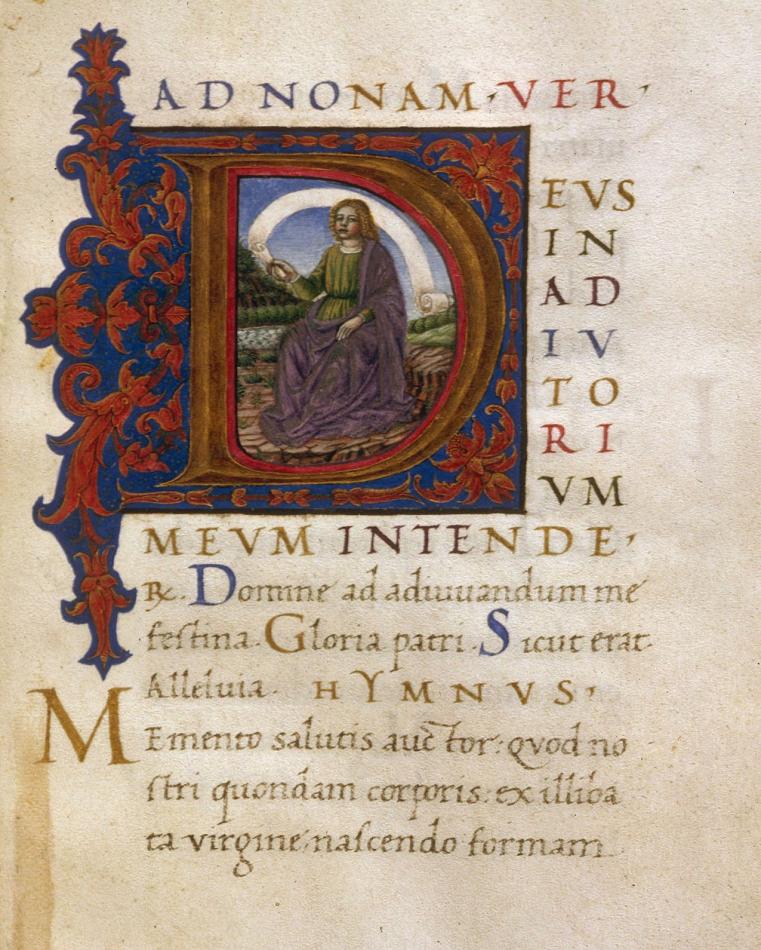 AD NONAM VER
DEVS
IN
AD
IV
TO
RI
VM
MEVM INTENDE
℞. Domine ad adiuuandum me
festina. Gloria patri. Sicut erat.
Alleluia. HYMNVS
MEmento salutis auctor: qvod no
stri quondam corporis: ex illiba
ta virgine nascendo formam